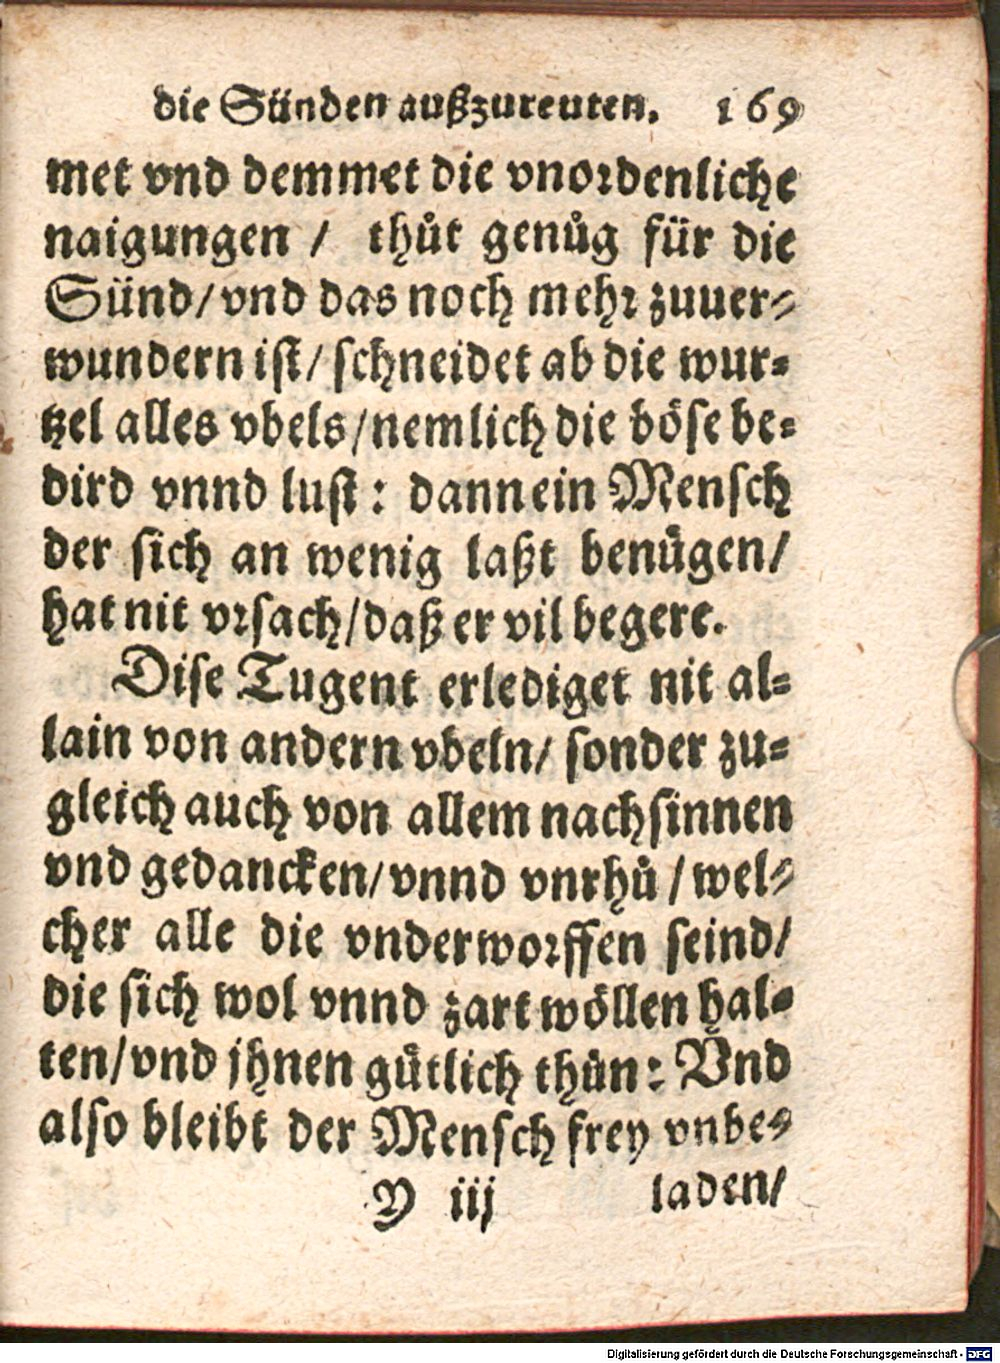 die Sünden außzureuten. 169
met vnd demmet die vnordenliche
naigungen / thůt genůg für die
Sünd/vnd das noch mehr zuuer-
wundern ist/ schneidet ab die wur-
tzel alles vbels/nemlich die böse be-
dird vnnd lust: dann ein Mensch
der sich an wenig laßt benůgen/
hat nit vrsach/daß er vil begere.
Dise Tugent erlediget nit al-
lain von andern vbeln/ sonder zu-
gleich auch von allem nachsinnen
vnd gedancken/vnnd vnrhů / wel-
cher alle die vnderworffen seind/
die sich wol vnnd zart wöllen hal-
ten/vnd jhnen gůtlich thůn: Vnd
also bleibt der Mensch frey vnbe-
Y iij laden/
Digitalisierung gefördert durch die Deutsche Forschungsgemeinschaft - DFG